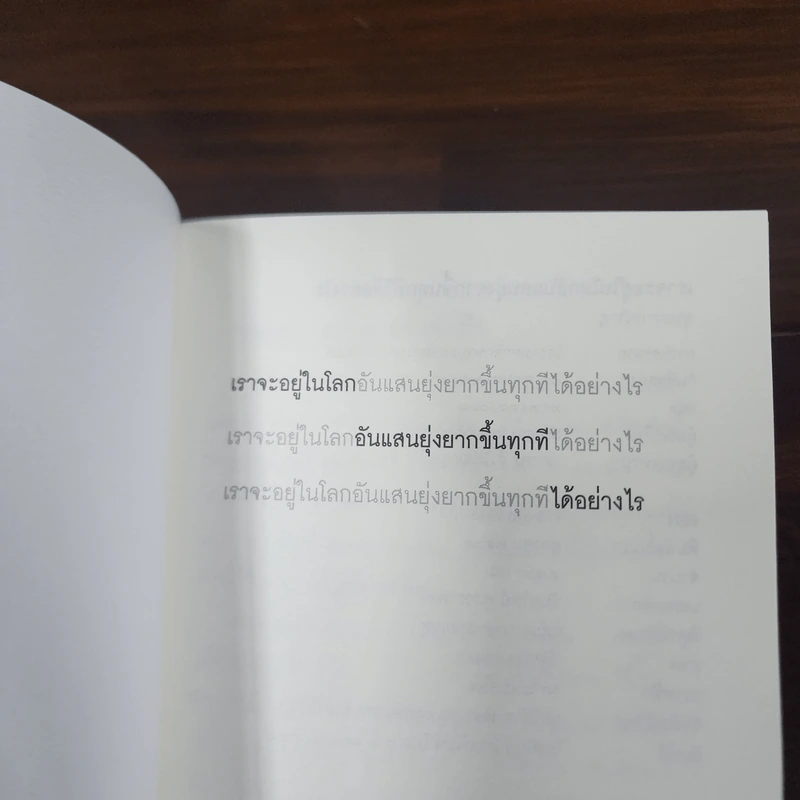 เราจะอยู่ในโลกอันแสนยุ่งยากขึ้นทุกทีได้อย่างไร
เราจะอยู่ในโลกอันแสนยุ่งยากขึ้นทุกทีได้อย่างไร
เราจะอยู่ในโลกอันแสนยุ่งยากขึ้นทุกทีได้อย่างไร